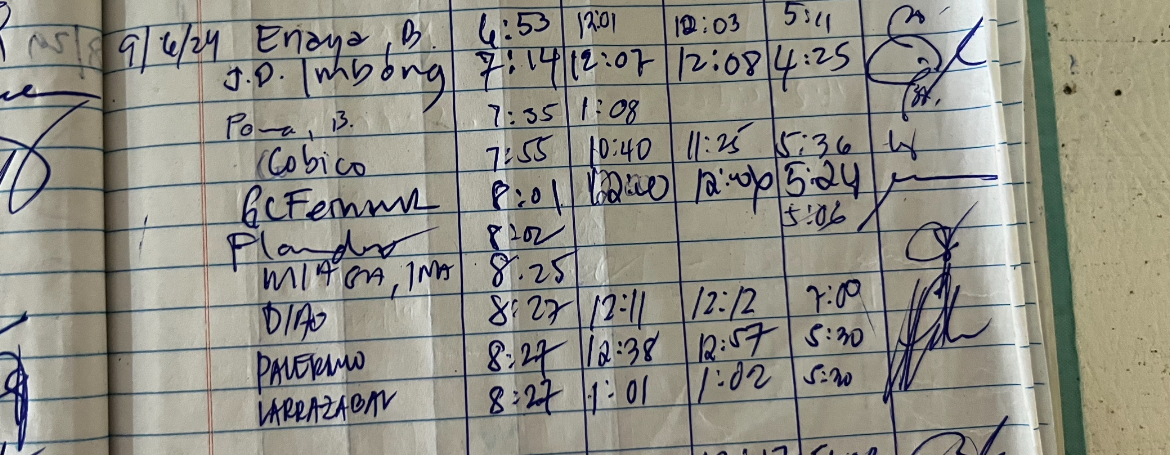 9/6/24 Enaya, B. 6:53 12:01 12:03 5:11
J.D. Imbong 7:14 12:07 12:08 4:25
7:35 1:08
Cobico 7:55 10:40 11:25 5:36
8:01 12:00 12:00p 5:24
8:02 5:06
8:25
DIAO 8:27 12:11 12:12 7:00
PALERMO 8:27 12:38 12:57 5:30
LARRAZABAL 8:27 1:01 1:02 5:30